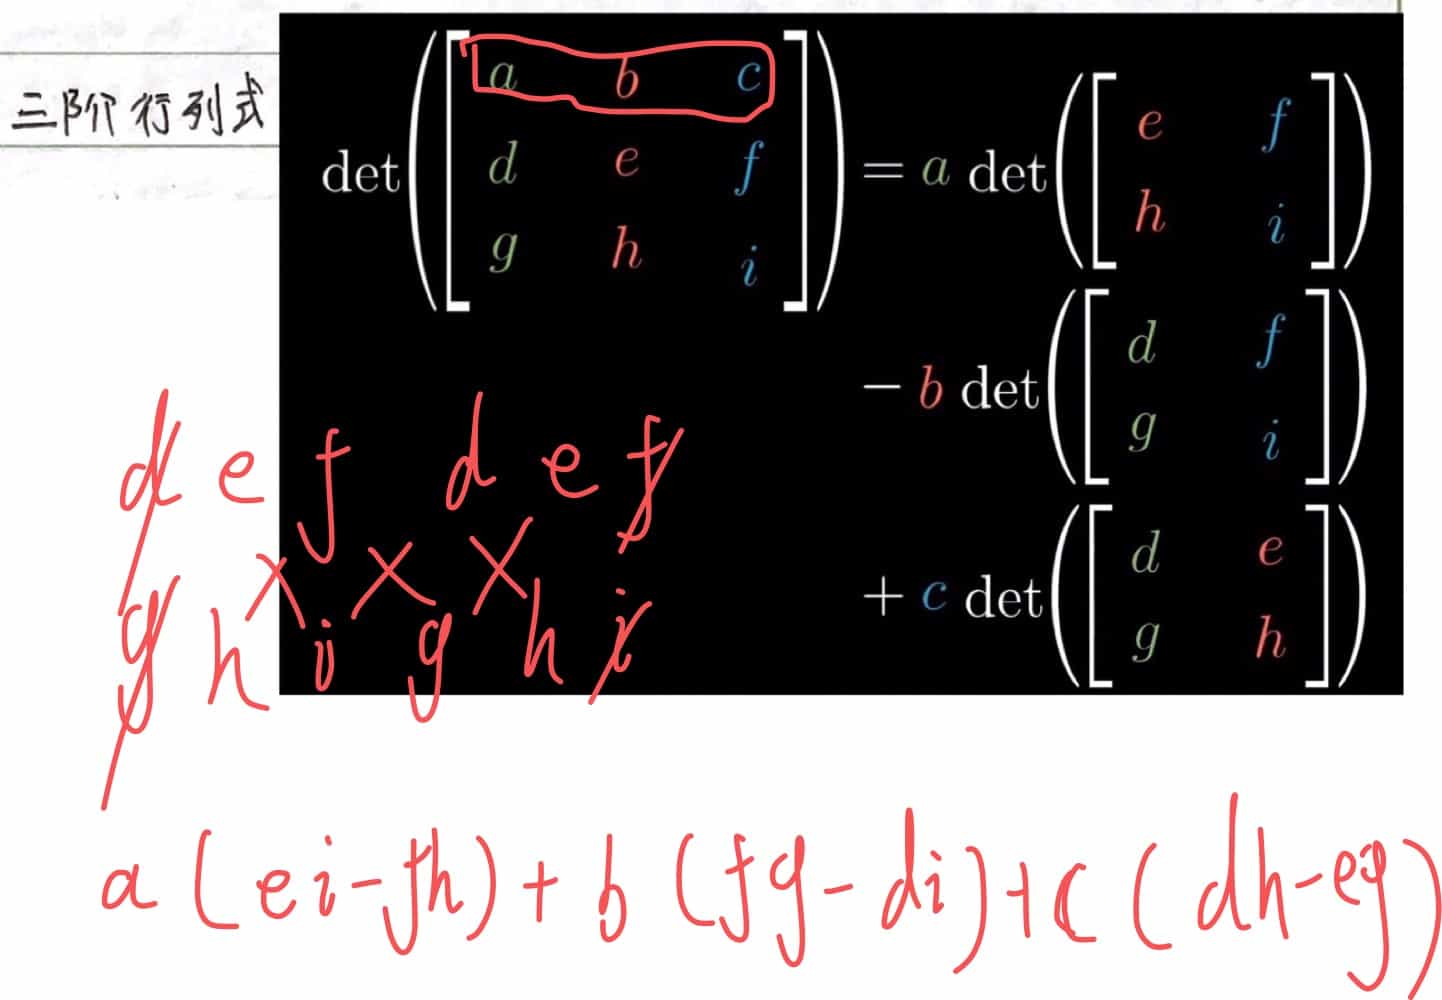 三阶行列式
det([a b c
d e f
g h i]) = a det([e f
h i])
− b det([d f
g i])
+ c det([d e
g h])
d e f d e f
g h i g h i
a(ei-fh)+b(fg-di)+c(dh-eg)